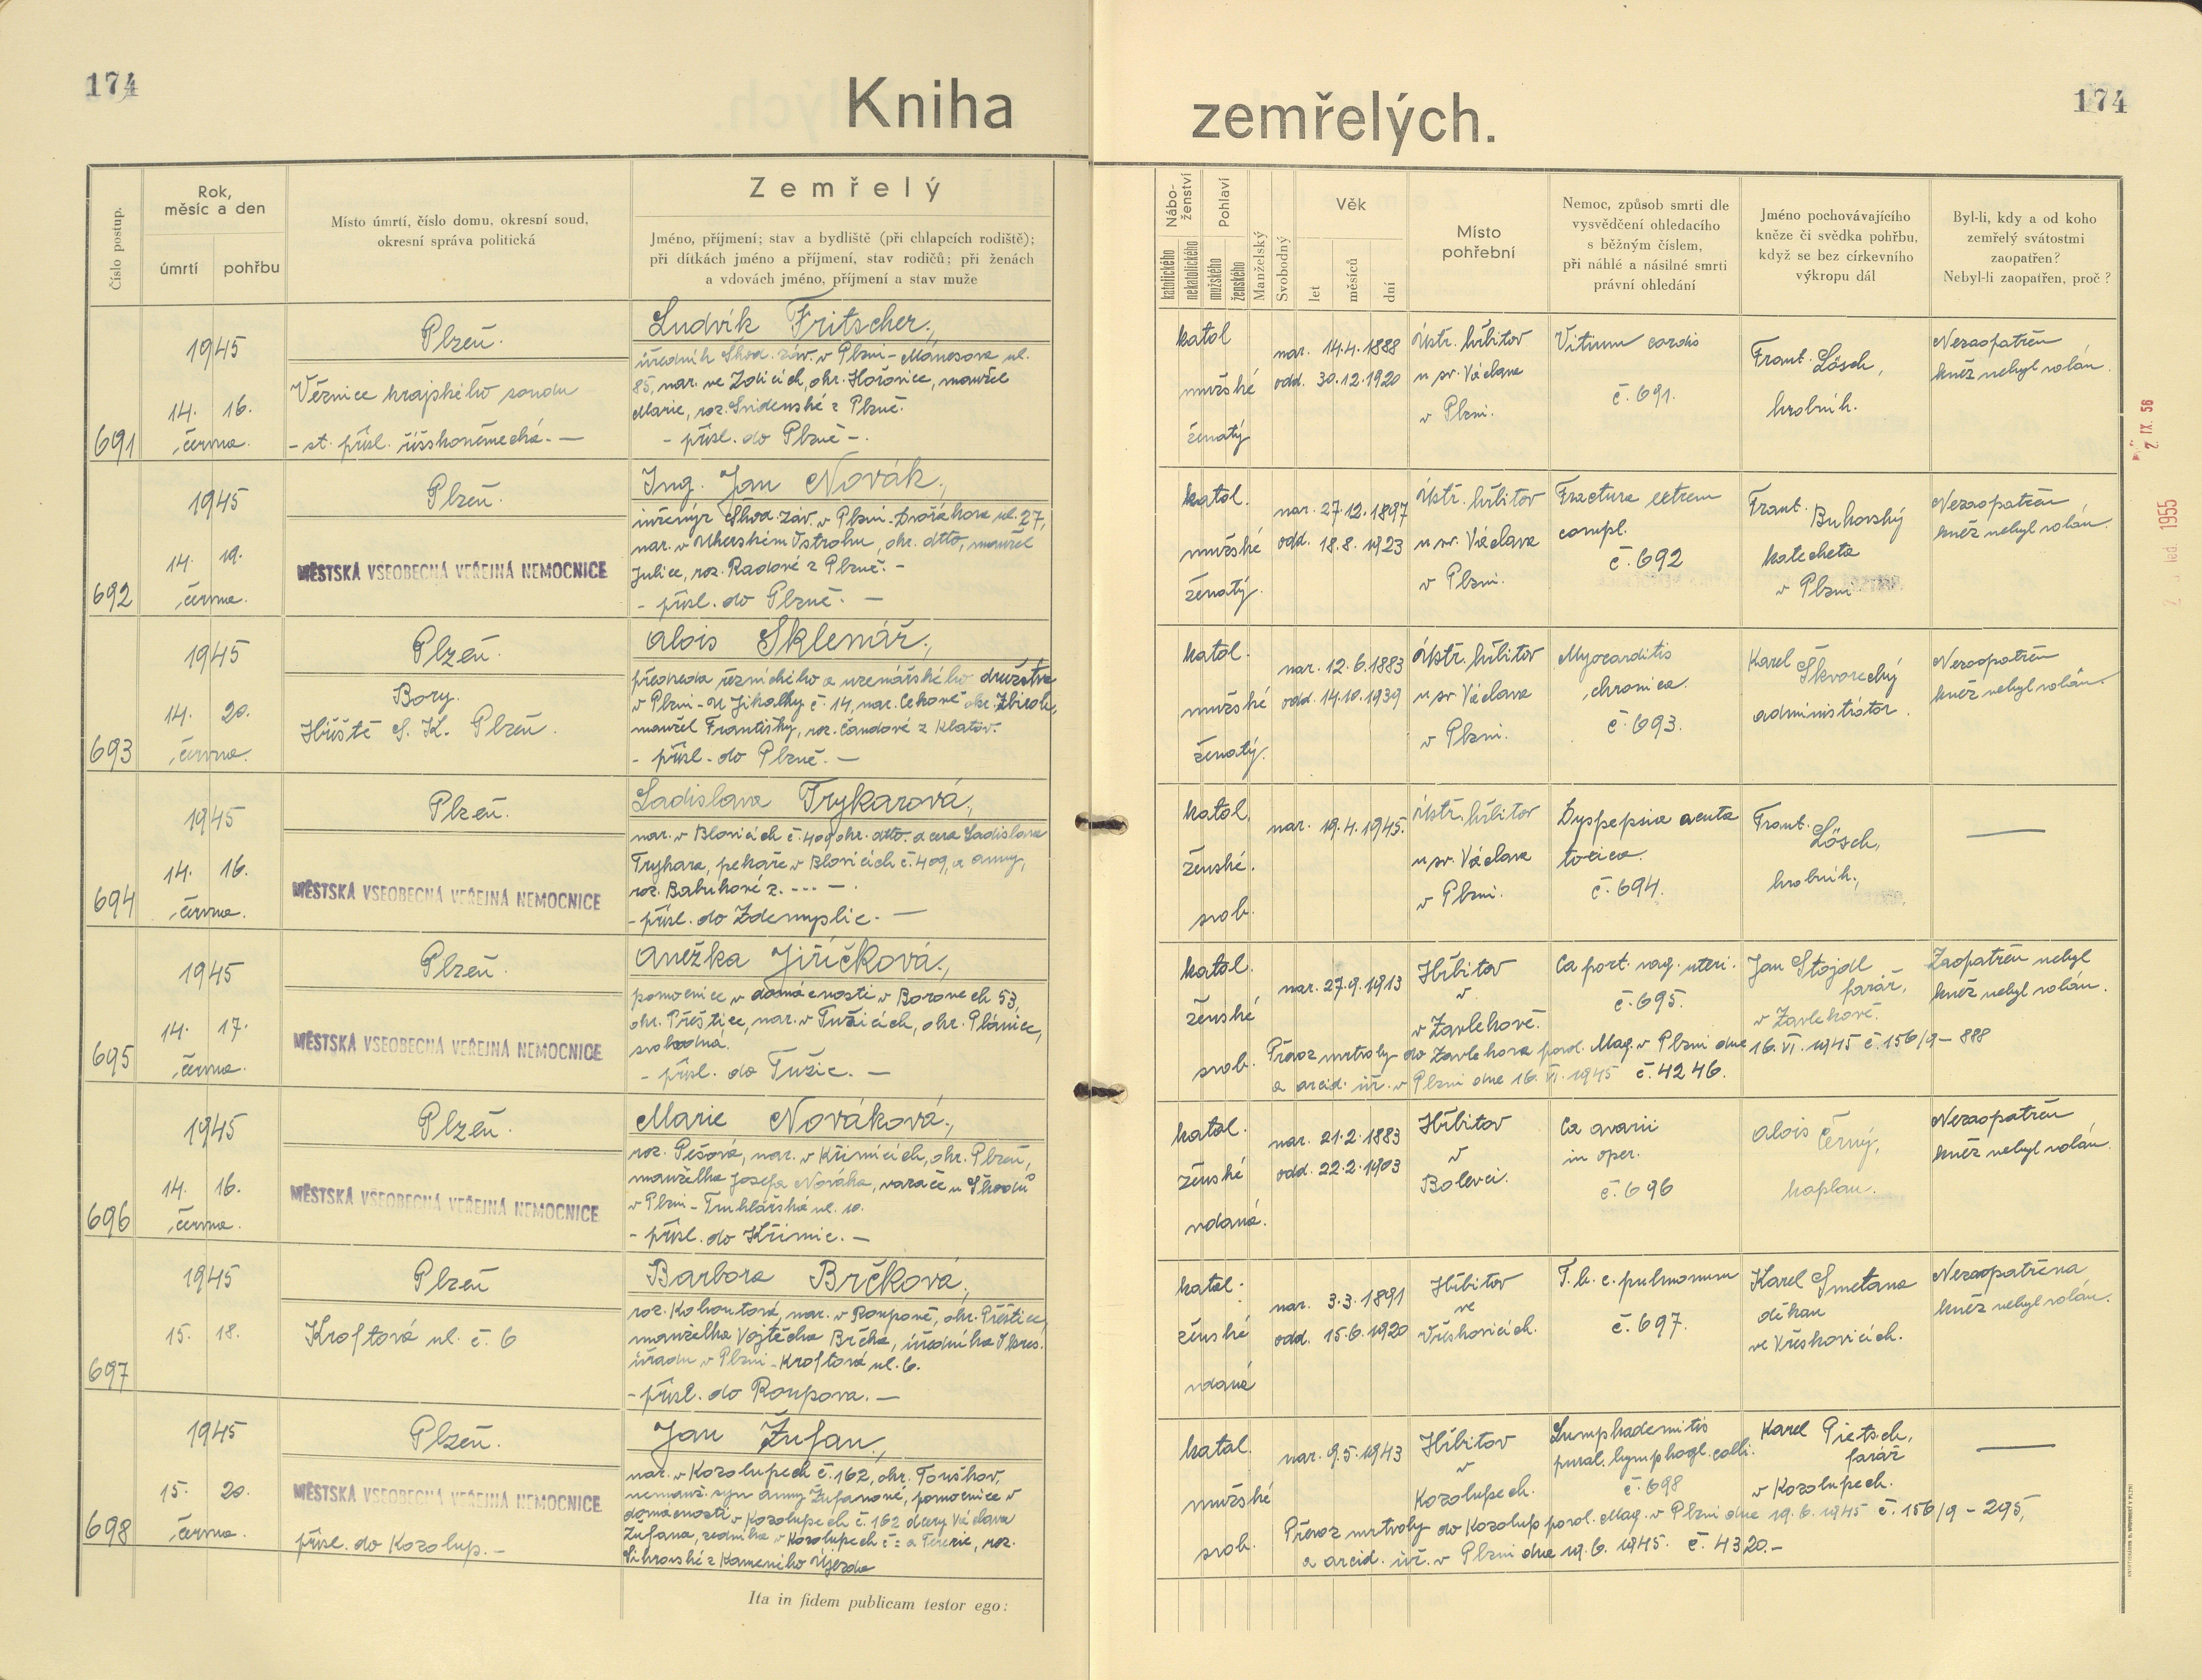 174
Kniha
zemřelých.
174
Číslo postup.
Rok,
měsíc a den
úmrtí
pohřbu
Místo úmrtí, číslo domu, okresní soud,
okresní správa politická
Zemřelý
Jméno, příjmení; stav a bydliště (při chlapcích rodiště);
při dítkách jméno a příjmení, stav rodičů; při ženách
a vdovách jméno, příjmení a stav muže
Nábo-
ženství
katolického
nekatolického
Pohlaví
mužského
ženského
Manželský
Svobodný
Věk
let
měsíců
dní
Místo
pohřební
Nemoc, způsob smrti dle
vysvědčení ohledacího
s běžným číslem,
při náhlé a násilné smrti
právní ohledání
Jméno pochovávajícího
kněze či svědka pohřbu,
když se bez církevního
výkropu dál
Byl-li, kdy a od koho
zemřelý svátostmi
zaopatřen?
Nebyl-li zaopatřen, proč?
691
1945
14. 16.
června.
Plzeň.
Věznice krajského soudu
- st. přísl. říšskoněmecká. —
Ludvík Fritscher.,
úředník Škod. záv. v Plzni - Mánesova ul.
85, nar. ve Zdicích, okr. Hořovice, manžel
Marie, roz. Snidenské z Plzně.
- přísl. do Plzně -.
katol
mužské
ženatý
nar. 14.4.1888
odd. 30.12.1920
Ústř. hřbitov
u sv. Václava
v Plzni.
Vitium cordis
č. 691.
Frant. Lösch,
hrobník.
Nezaopatřen
kněz nebyl volán.
692
1945
14. 19.
června.
Plzeň.
MĚSTSKÁ VŠEOBECNÁ VEŘEJNÁ NEMOCNICE
Ing. Jan Novák.,
inženýr Škod. záv. v Plzni - Dvořákova ul. 27,
nar. v Uherském Ostrohu, okr. dtto, manžel
Julie, roz. Radové z Plzně. -
- přísl. do Plzně. —
katol.
mužské
ženatý.
nar. 27.12.1897
odd. 18.8.1923
Ústř. hřbitov
u sv. Václava
v Plzni.
Fractura extrem
compl.
č. 692
Frant. Bukovský
katecheta
v Plzni
Nezaopatřen
kněz nebyl volán.
693
1945
14. 20.
června.
Plzeň.
Bory.
Hřiště S. K. Plzeň.
Alois Sklenář.,
předseda řeznického a uzenářského družstva
v Plzni - U Jikalky č. 14, nar. Cekově okr. Zbiroh,
manžel Františky, roz. Čandové z Klatov.
- přísl. do Plzně. —
katol.
mužské
ženatý.
nar. 12.6.1883
odd. 14.10.1939
Ústř. hřbitov
u sv. Václava
v Plzni.
Myocarditis
chronica.
č. 693.
Karel Škvorecký
administrátor.
Nezaopatřen
kněz nebyl volán.
694
1945
14. 16.
června.
Plzeň.
MĚSTSKÁ VŠEOBECNÁ VEŘEJNÁ NEMOCNICE
Ladislava Trykarová.,
nar. v Blovicích č. 409 okr. dtto. dcera Ladislava
Trykara, pekaře v Blovicích č. 409, a Anny,
roz. Babukové z. --- —.
- přísl. do Zdemyslic. —
katol.
ženské.
svob.
nar. 19.4.1945.
Ústř. hřbitov
u sv. Václava
v Plzni.
Dyspepsia acuta
toxica.
č. 694.
Frant. Lösch,
hrobník.,
—
695
1945
14. 17.
června.
Plzeň.
MĚSTSKÁ VŠEOBECNÁ VEŘEJNÁ NEMOCNICE
Anežka Jiříčková.,
pomocnice v domácnosti v Borovech 53,
okr. Přeštice, nar. v Tužicích, okr. Plánice,
svobodna.
- přísl. do Tužic. —
katol.
ženské
svob.
nar. 27.9.1913
Hřbitov
v
v Zavlekově.
Ca port. vag. uteri.
č. 695.
Jan Stojdl
farář,
v Zavlekově.
Zaopatřen nebyl
kněz nebyl volán.
Převoz mrtvoly do Zavlekova povol. Mag. v Plzni dne 16.VI.1945 č. 156/9 - 888
a arcid. úř. v Plzni dne 16.VI.1945 č. 4246.
696
1945
14. 16.
června.
Plzeň.
MĚSTSKÁ VŠEOBECNÁ VEŘEJNÁ NEMOCNICE
Marie Nováková.,
roz. Pešová, nar. v Křimicích, okr. Plzeň,
manželka Josefa Nováka, vazače u Škodů
v Plzni - Truhlářská ul. 10.
- přísl. do Křimic. —
katol.
ženské
vdaná.
nar. 21.2.1883
odd. 22.2.1903
Hřbitov
v
Bolevci.
Ca ovarii
in oper.
č. 696
Alois Černý,
kaplan.
Nezaopatřen
kněz nebyl volán.
697
1945
15. 18.
Plzeň
Kroftova ul. č. 6
Barbora Brčková.,
roz. Kohoutová, nar. v Roupově, okr. Přeštice,
manželka Vojtěcha Brčka, úředníka Okres.
úřadu v Plzni - Kroftova ul. 6.
- přísl. do Roupova. —
katol.
ženské
vdaná
nar. 3.3.1891
odd. 15.6.1920
Hřbitov
ve
Vřeskovicích.
T. b. c. pulmonum
č. 697.
Karel Smetana
děkan
ve Vřeskovicích.
Nezaopatřena
kněz nebyl volán.
698
1945
15. 20.
června.
Plzeň.
MĚSTSKÁ VŠEOBECNÁ VEŘEJNÁ NEMOCNICE
přísl. do Kozolup. —
Jan Žufan.,
nar. v Kozolupech č. 162, okr. Touškov,
nemanž. syn Anny Žufanové, pomocnice v
domácnosti v Kozolupech č. 162 dcery Václava
Žufana, zedníka v Kozolupech č: a Terezie, roz.
z Kamenného Újezda
katol.
mužské
svob.
nar. 9.5.1943
Hřbitov
v
Kozolupech.
Lumphadenitis
purul. lymphogl. colli.
č. 698
Karel Pietsch,
farář
v Kozolupech.
—
Převoz mrtvoly do Kozolup povol. Mag. v Plzni dne 19.6.1945 č. 156/9 - 295,
a arcid. úř. v Plzni dne 19.6.1945. č. 4320.-
Ita in fidem publicam testor ego:
2. IX. 56
1955